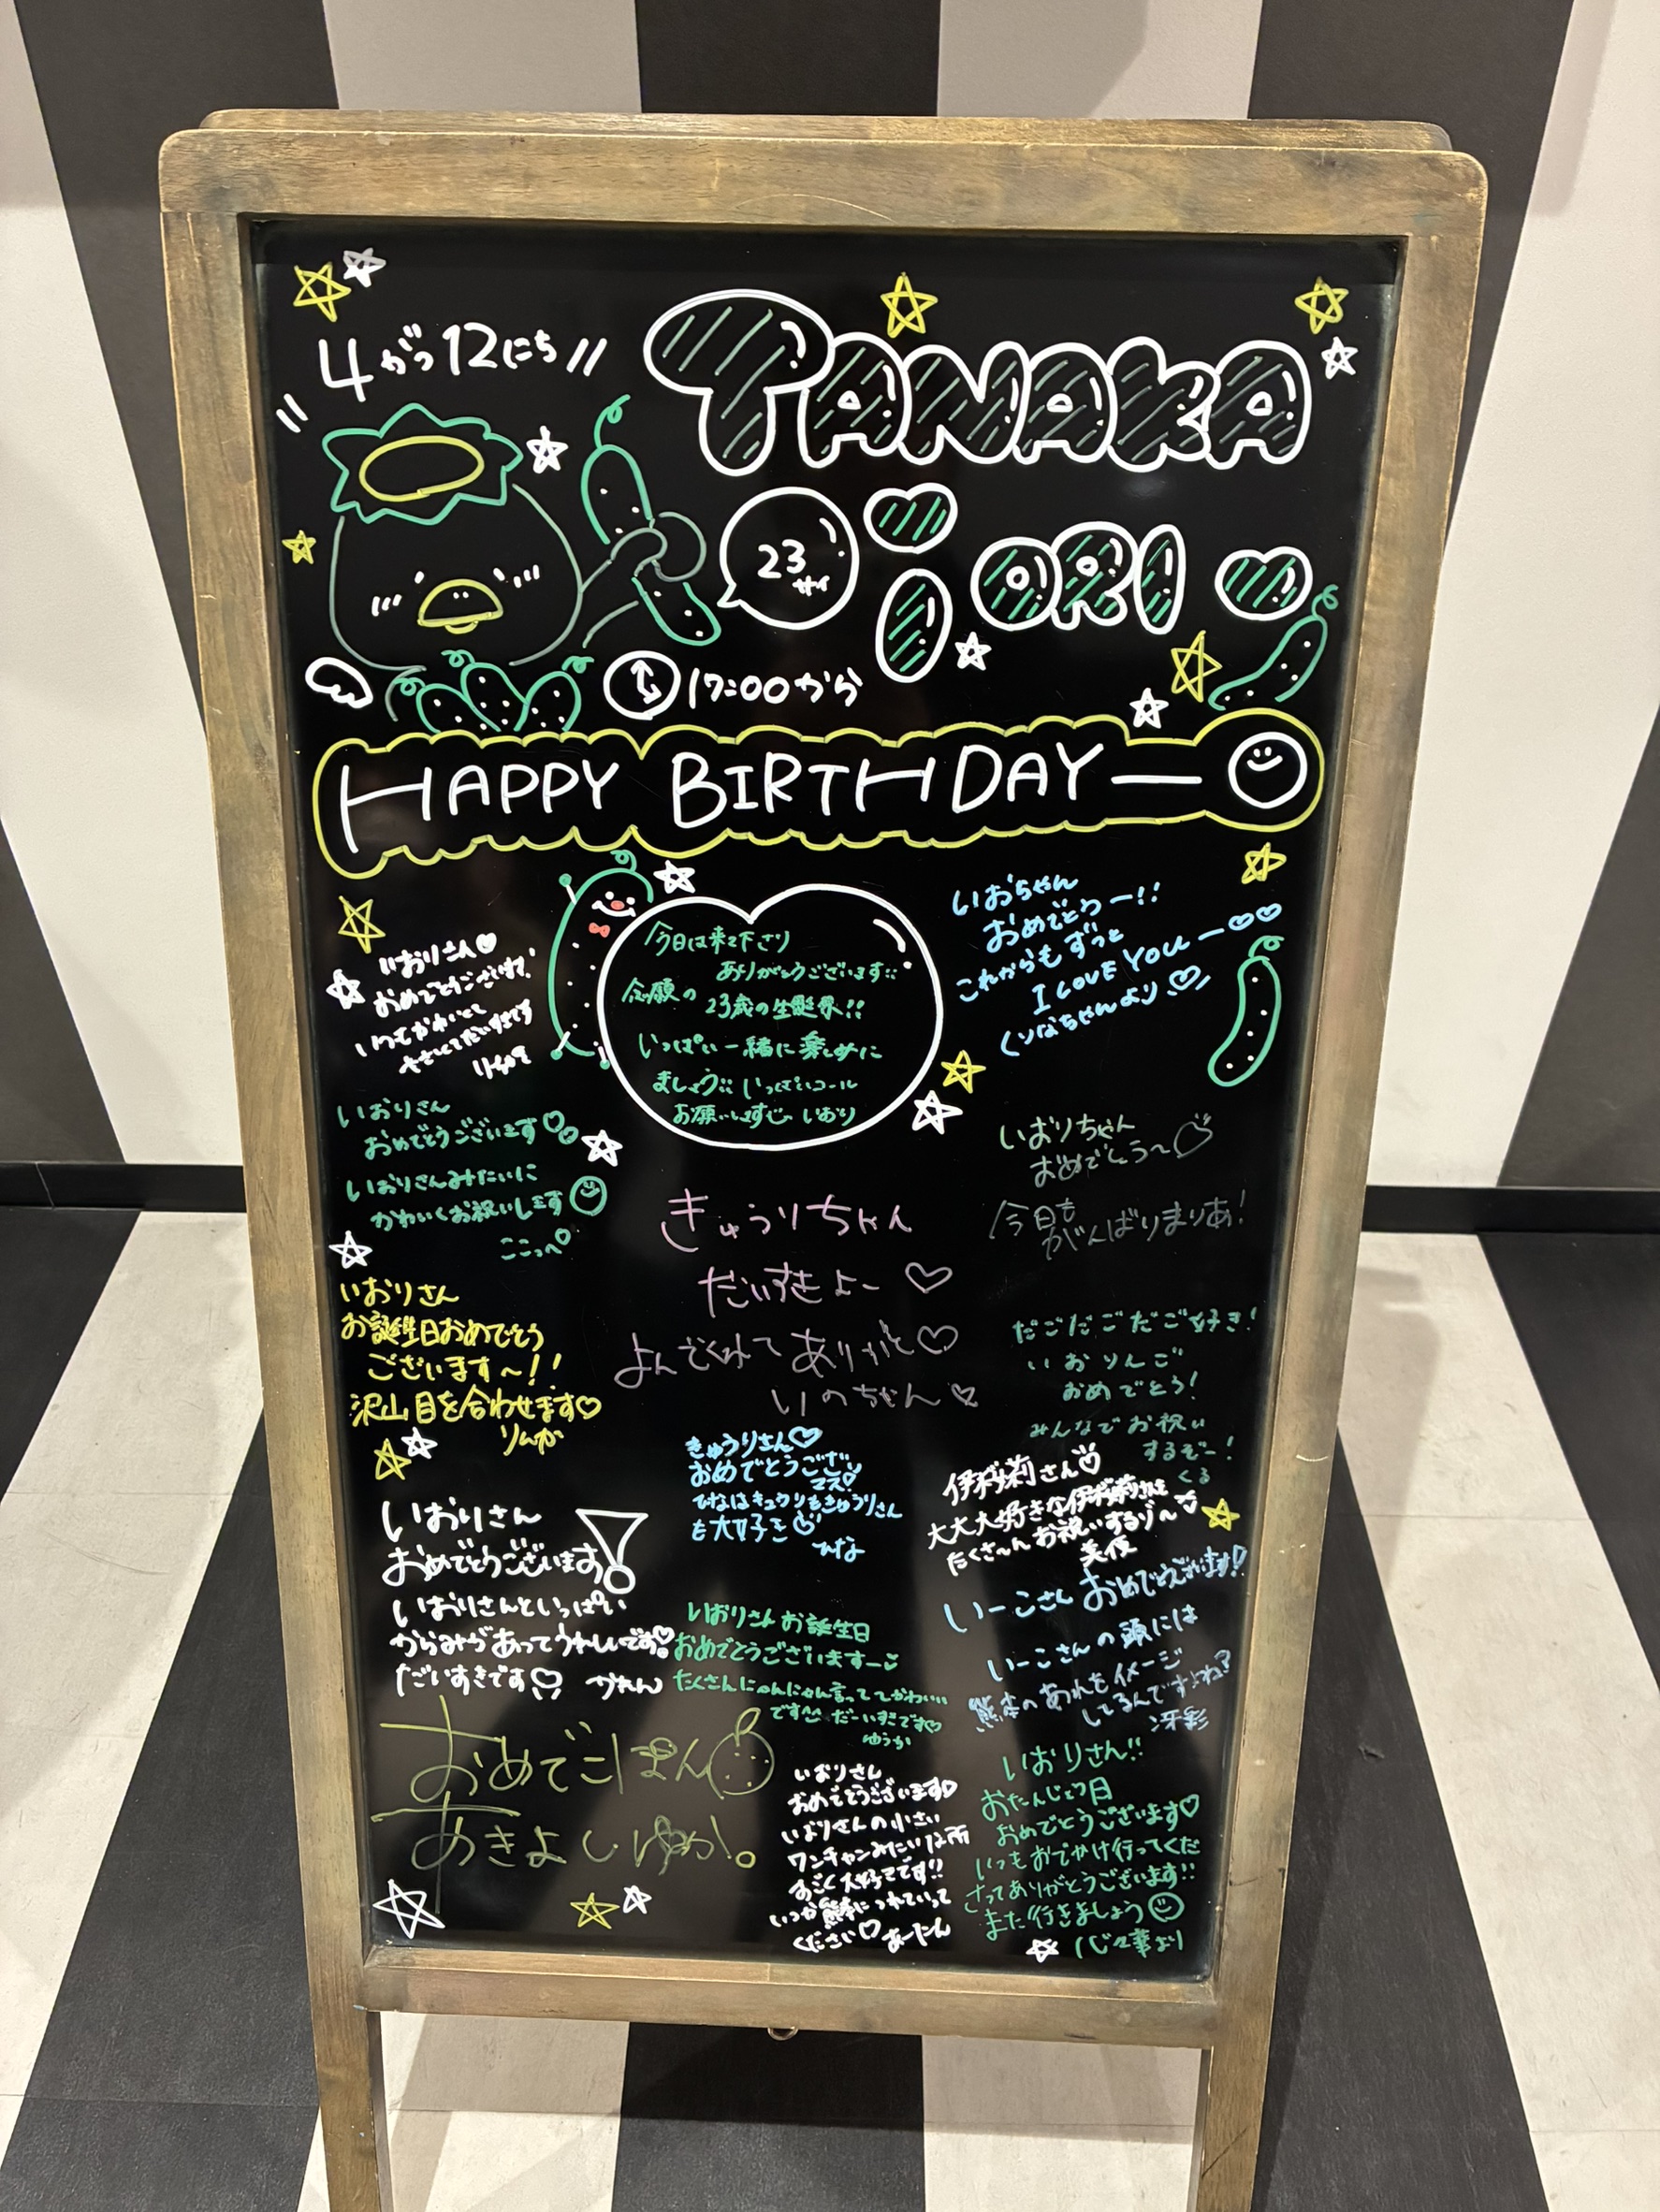 4がつ12にち
TANAKA
23
サイ
iORI
17:00から
HAPPY BIRTHDAY
今日は来て下さり
ありがとうございます!!
念願の
23歳の生誕祭!!
いっぱい一緒に楽しみ
ましょう!! いっぱいコール
お願いします いおり
いおちゃん
おめでとうー!!
これからもずっと
I LOVE YOU ー♡♡
くりなちゃんより♡
いおりさん♡
おめでとうございます!
いつもかわいくて
いおりさん
おめでとうございます♡
いおりさんみたいに
かわいくお祝いします
ここっぺ
いおりちゃん
おめでとう〜
今日も
がんばりまりあ!
きゅうりちゃん
だいすきよー ♡
よんでくれて ありがと♡
いのちゃん♡
いおりさん
お誕生日おめでとう
ございます〜!!
沢山目を合わせます♡
りんか
だごだごだご好き!
いおりんご
おめでとう!
みんなでお祝い
するぞー!
くる
きゅうりさん♡
おめでとうござい
マス!
ひなはキュウリもきゅうりさん
も大好き♡
ひな
伊桜莉さん♡
大大大好きな伊桜莉さんを
たくさ〜んお祝いするゾ〜
美優
いおりさん
おめでとうございます!
いおりさんといっぱい
からみがあってうれしいです♡
だいすきです♡ かれん
いーこさん おめでとうございます!
いーこさんの頭には
熊本のあれをイメージ
してるんですよね?
冴彩
いおりさんお誕生日
おめでとうございますー
たくさんにゃんにゃん言ってて かわいい
です だーいすきです♡
ゆうか
おめでこぽん
あきよしゆか。
いおりさん
おめでとうございます♡
いおりさんの小さい
ワンチャンみたいな所
すごく大好きです!!
いつか熊本につれていって
ください♡ あーたん
いおりさん!!
おたんじょう日
おめでとうございます♡
いつもおでかけ行ってくだ
さってありがとうございます!!
また行きましょう
心々華より